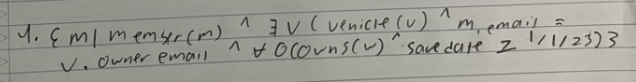 4. { m | member(m) ^ ∃ V ( venicle (v) ^ m, email =
V. owner email ^ ∀ O(Owns(v) ^ savedate Z 1/1/23) }